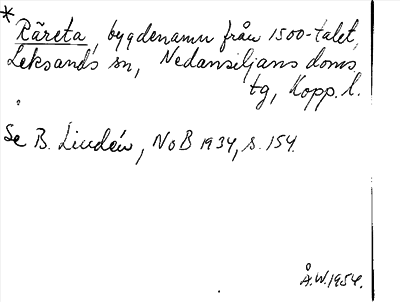 * Räreta, bygdenamn från 1500-talet,
Leksands sn, Nedansiljans doms
tg, Kopp. l.
Se B. Lindén, NoB 1934, s. 154.
Å.W. 1954.